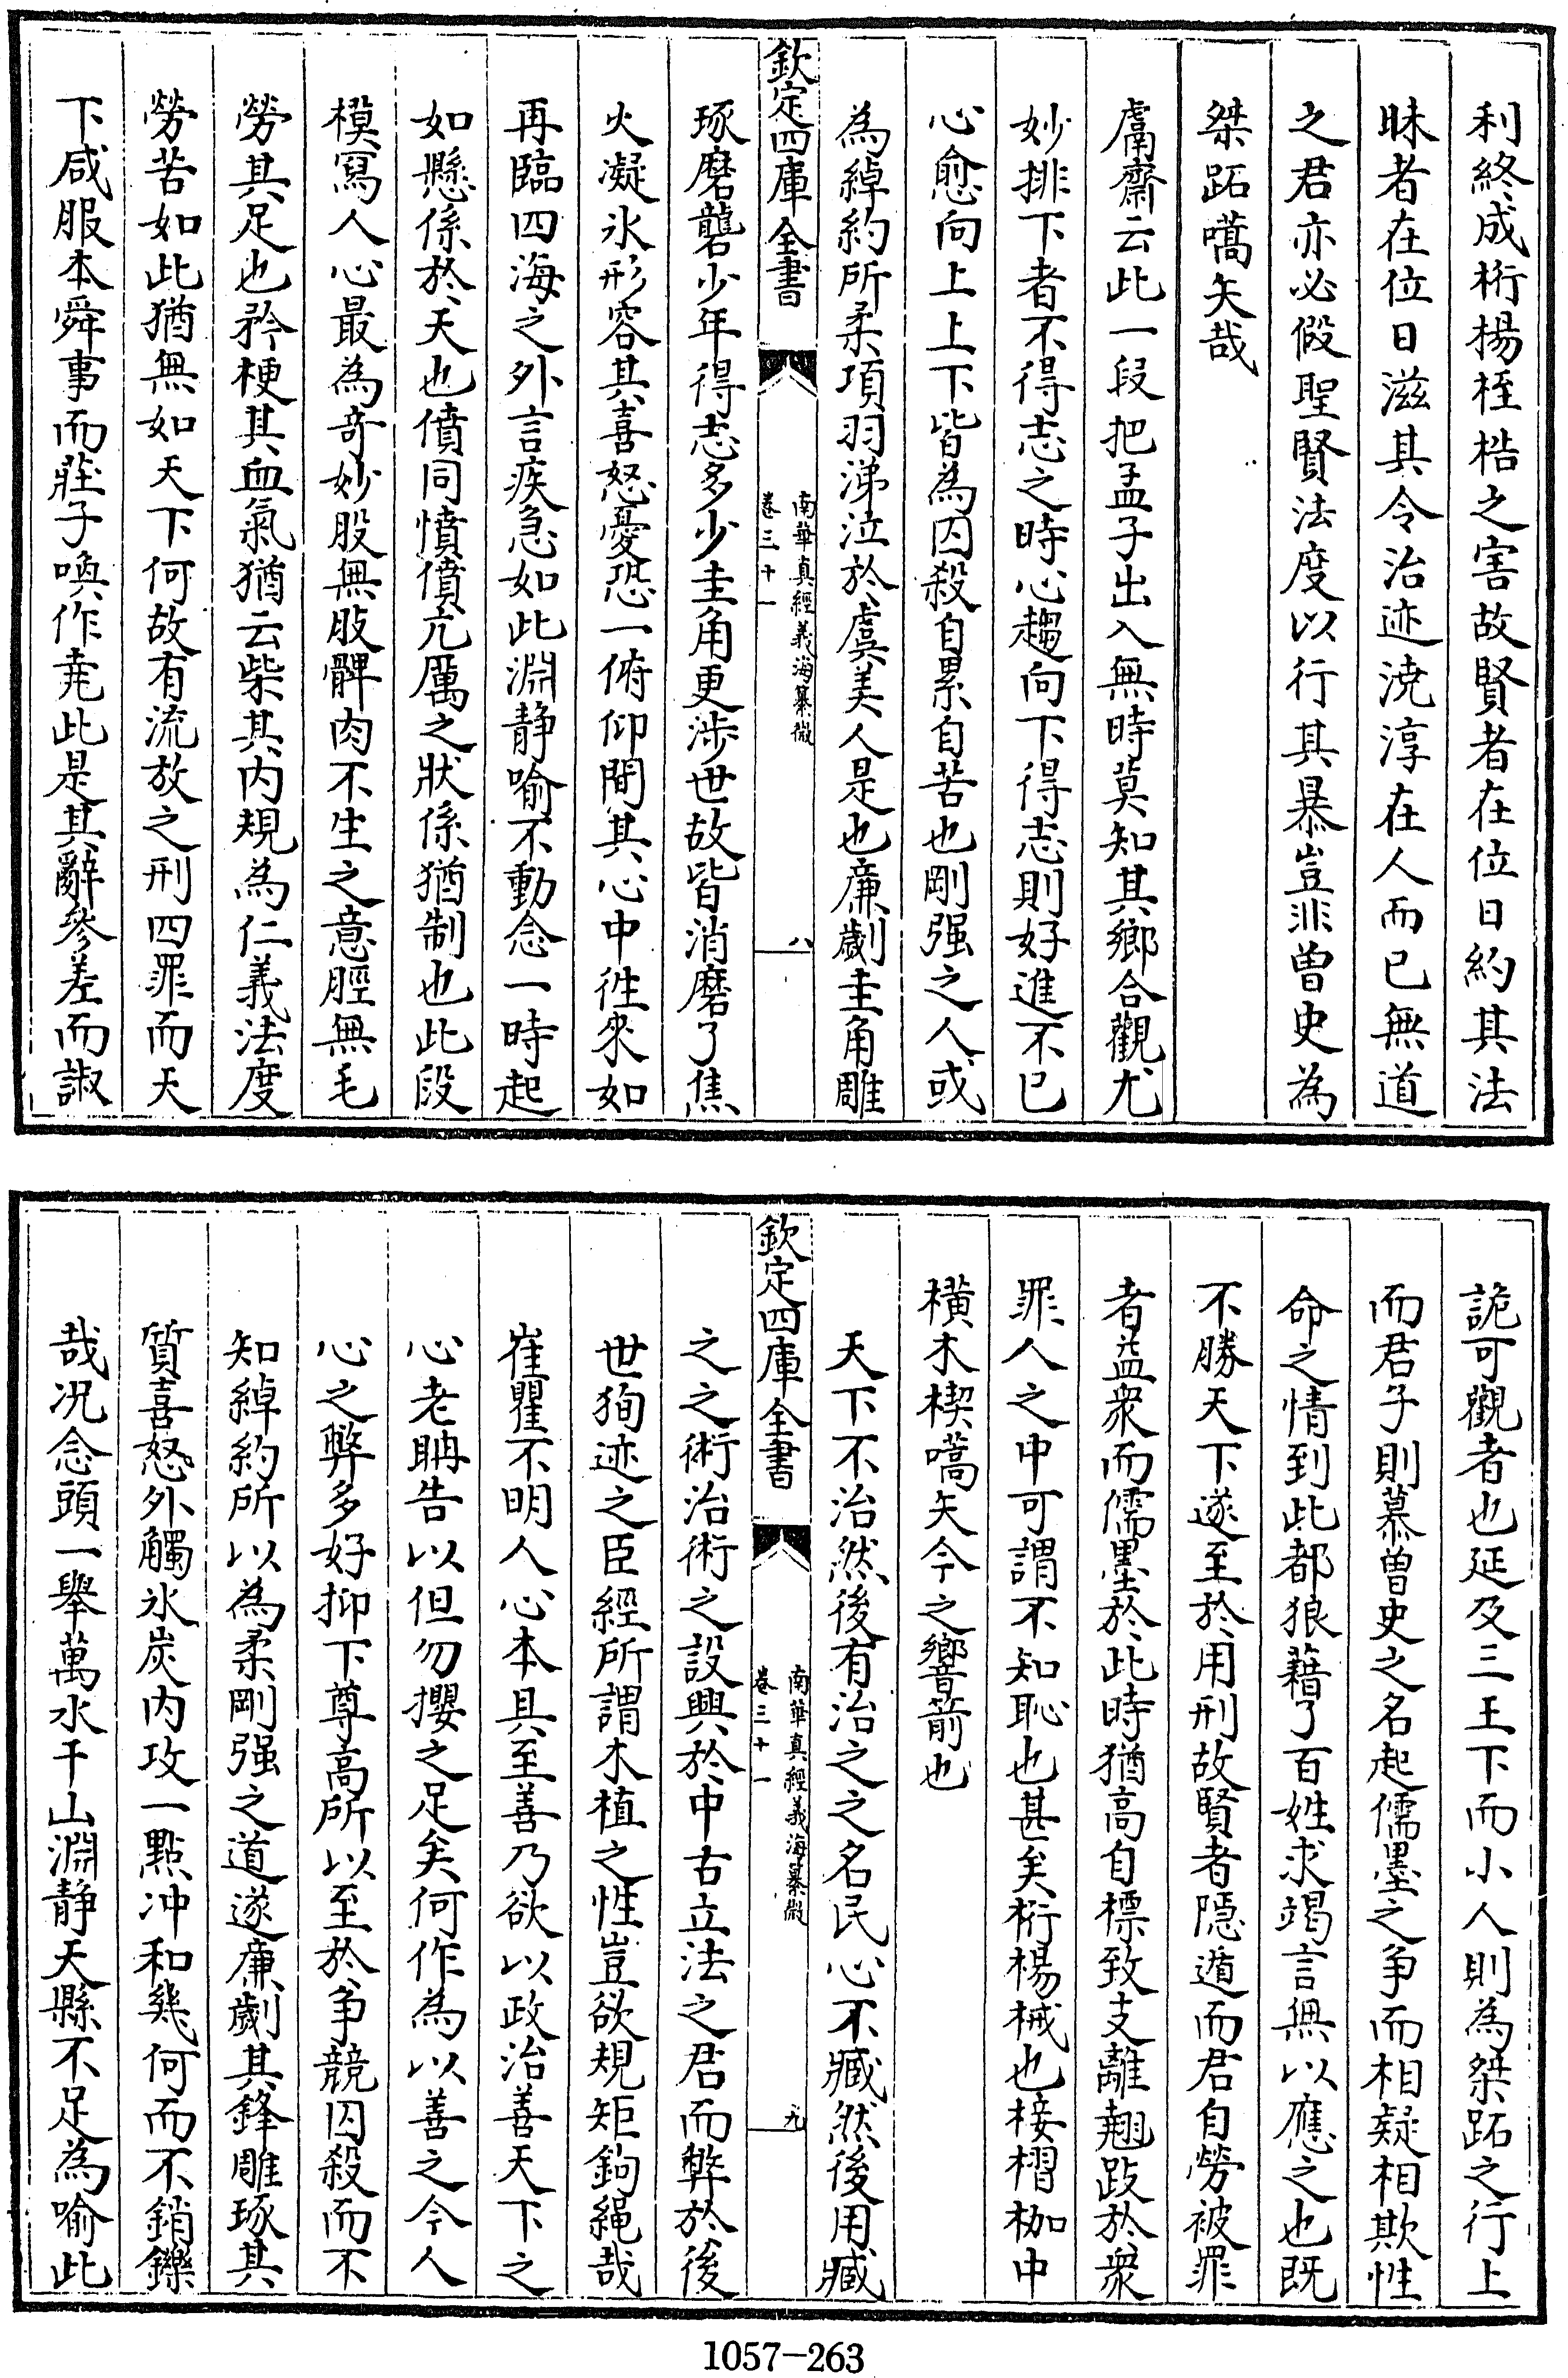 利終成桁楊桎梏之害故賢者在位日約其法
昧者在位日滋其令治迹澆淳在人而已無道
之君亦必假聖賢法度以行其暴豈非曾史為
桀跖嚆矢哉
鬳齋云此一段把孟子出入無時莫知其鄉合觀尤
妙排下者不得志之時心趨向下得志則好進不已
心愈向上上下皆為囚殺自累自苦也剛强之人或
為綽約所柔項羽涕泣於虞美人是也廉劌圭角雕
欽定四庫全書
南華真經義海纂微
卷三十一
八
琢磨礱少年得志多少圭角更涉世故皆消磨了焦
火凝氷形容其喜怒憂恐一俯仰間其心中徃來如
再臨四海之外言疾急如此淵静喻不動念一時起
如懸係於天也僨同憤僨亢厲之狀係猶制也此段
模寫人心最為奇妙股無胈髀肉不生之意脛無毛
勞其足也矜梗其血氣猶云柴其内規為仁義法度
勞苦如此猶無如天下何故有流放之刑四罪而天
下咸服本舜事而莊子喚作堯此是其辭參差而諔
詭可觀者也延及三王下而小人則為桀跖之行上
而君子則慕曾史之名起儒墨之爭而相疑相欺性
命之情到此都狼藉了百姓求竭言無以應之也既
不勝天下遂至於用刑故賢者隱遁而君自勞被罪
者益衆而儒墨於此時猶高自標致支離翹跂於衆
罪人之中可謂不知恥也甚矣桁楊械也椄槢枷中
横木楔嚆矢今之響箭也
天下不治然後有治之之名民心不臧然後用臧
欽定四庫全書
南華真經義海纂微
卷三十一
九
之之術治術之設興於中古立法之君而弊於後
世狥迹之臣經所謂木植之性豈欲規矩鉤䋲哉
崔瞿不明人心本具至善乃欲以政治善天下之
心老聃告以但勿攖之足矣何作為以善之今人
心之弊多好抑下尊高所以至於爭競囚殺而不
知綽約所以為柔剛强之道遂廉劌其鋒雕琢其
質喜怒外觸氷炭内攻一點冲和幾何而不銷鑠
哉况念頭一舉萬水千山淵静天縣不足為喻此
1057-263